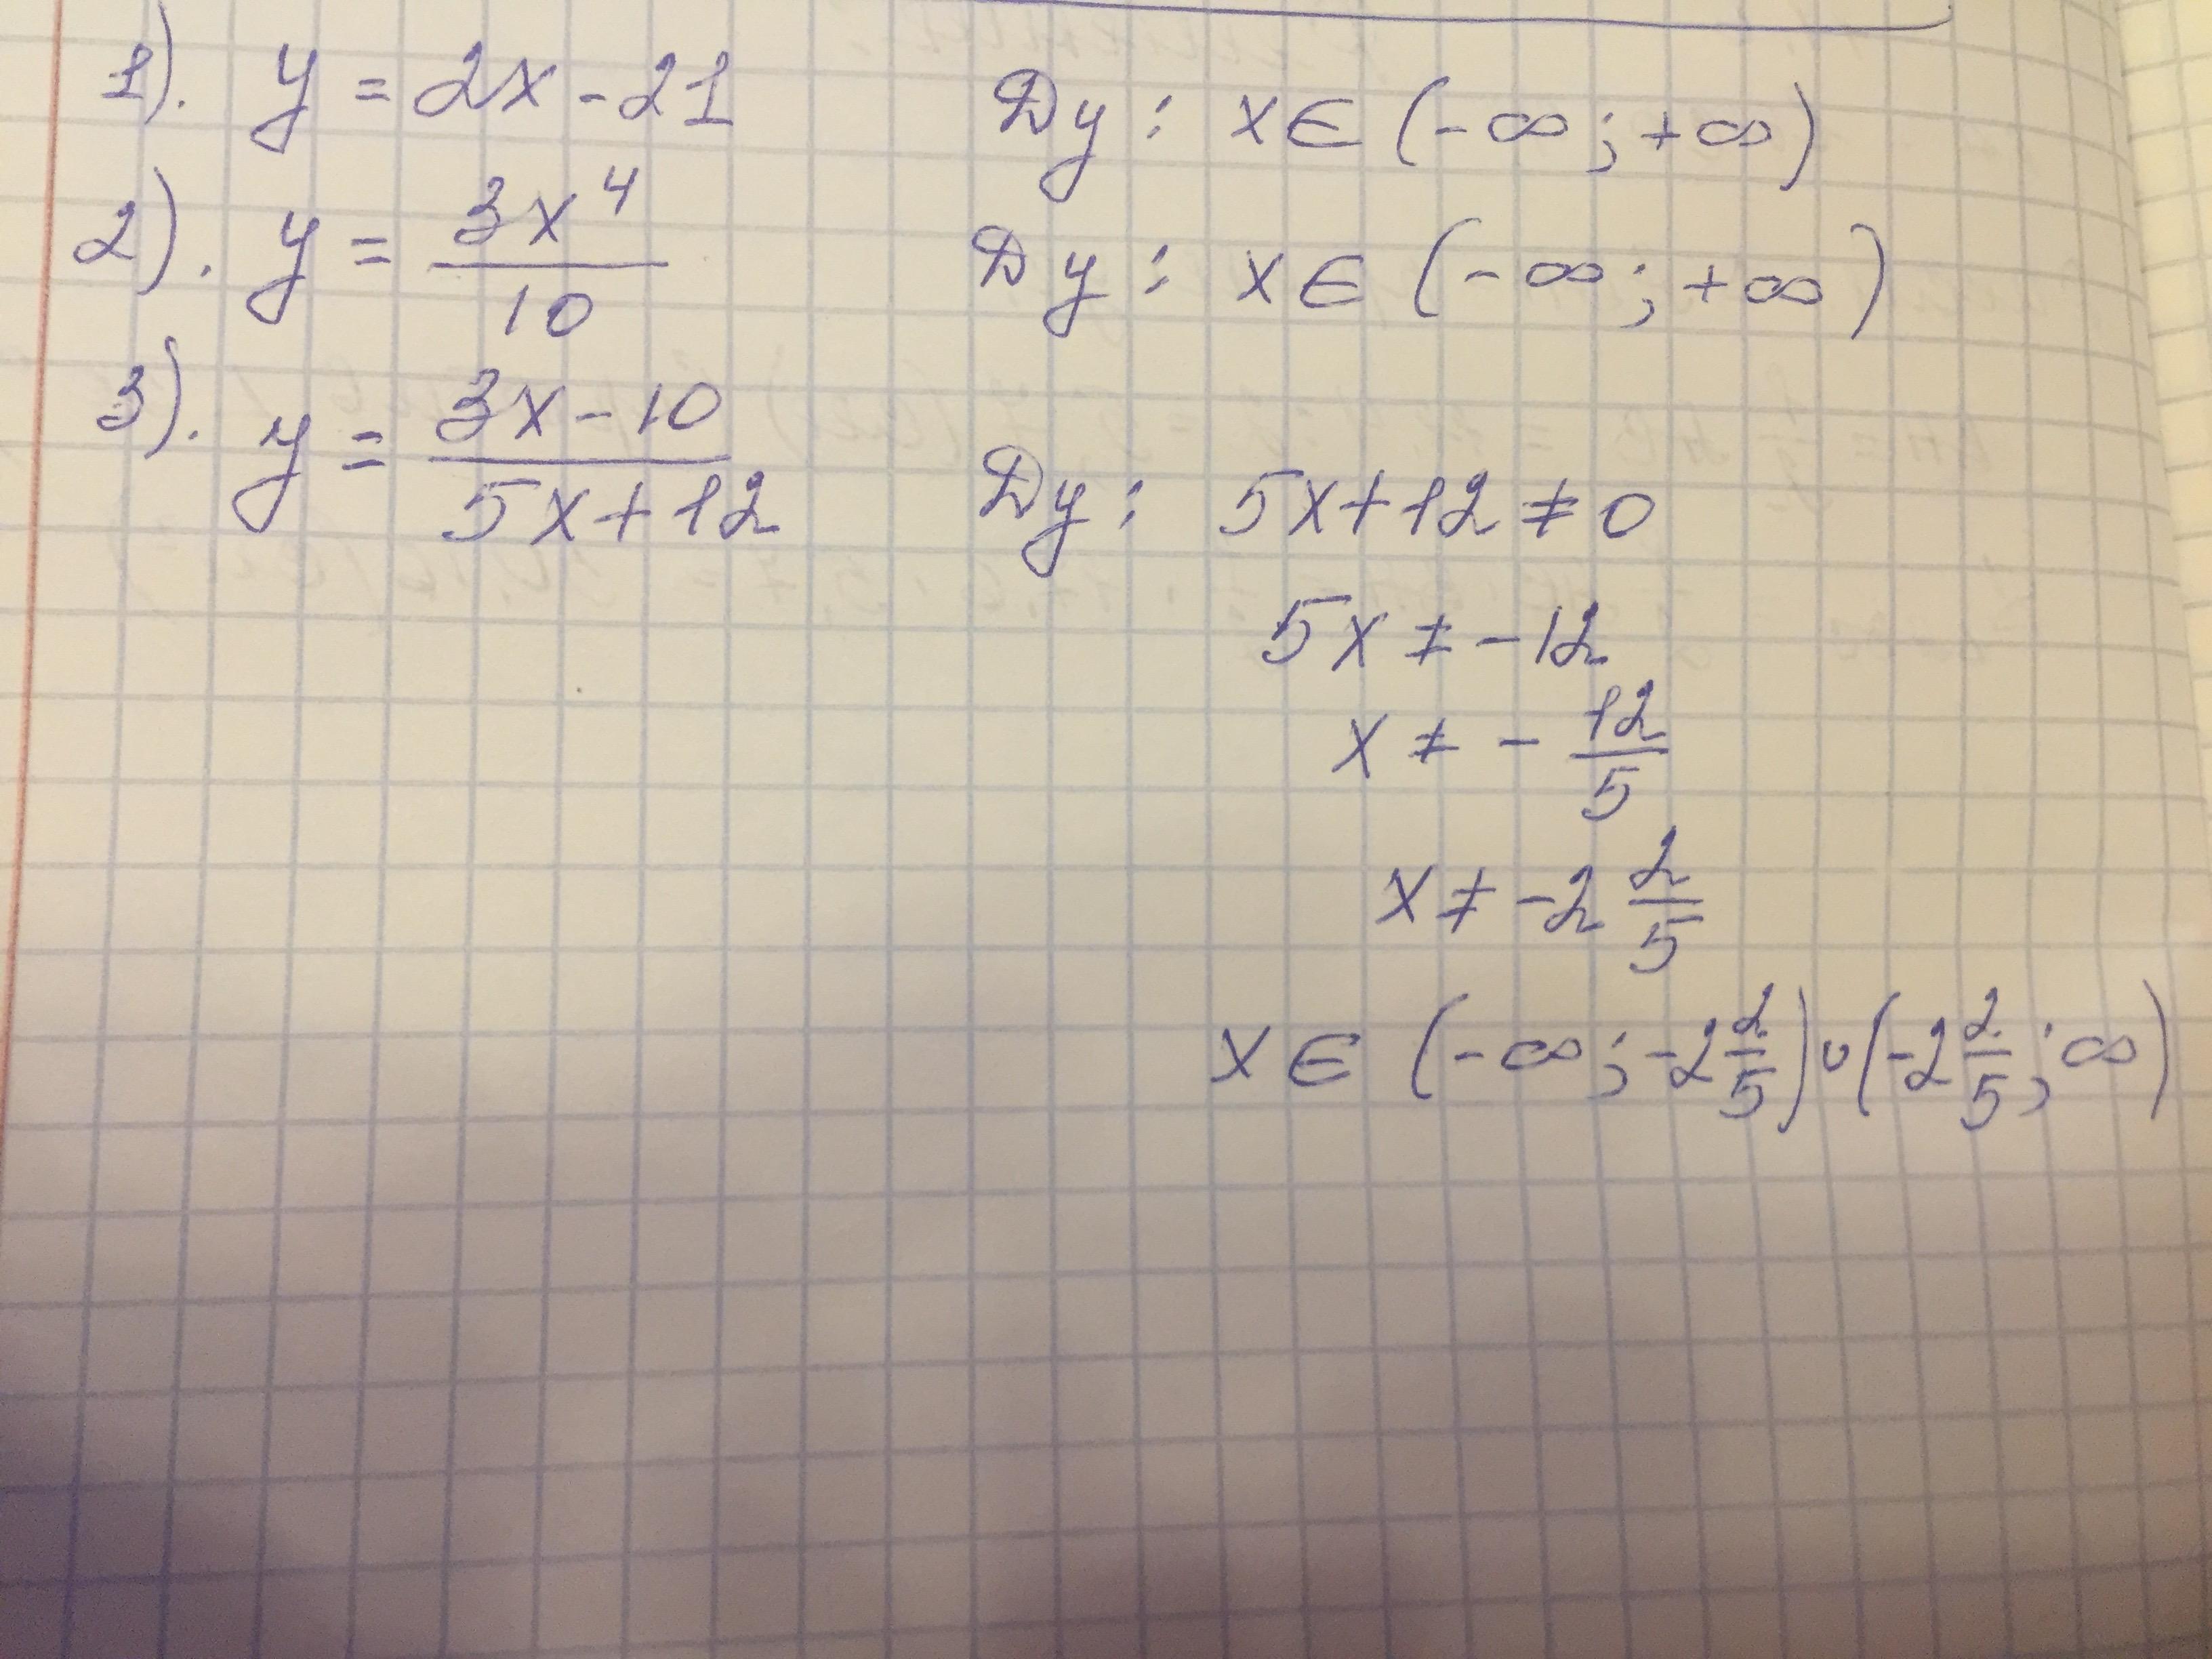 1). y = 2x - 21 Dy: x∈(-∞; +∞)
2). y = 3x⁴/10 Dy: x∈(-∞; +∞)
3). y = (3x - 10)/(5x + 12) Dy: 5x + 12 ≠ 0
5x ≠ -12
x ≠ - 12/5
x ≠ -2 2/5
x∈ (-∞; -2 2/5) ∪ (-2 2/5; ∞)